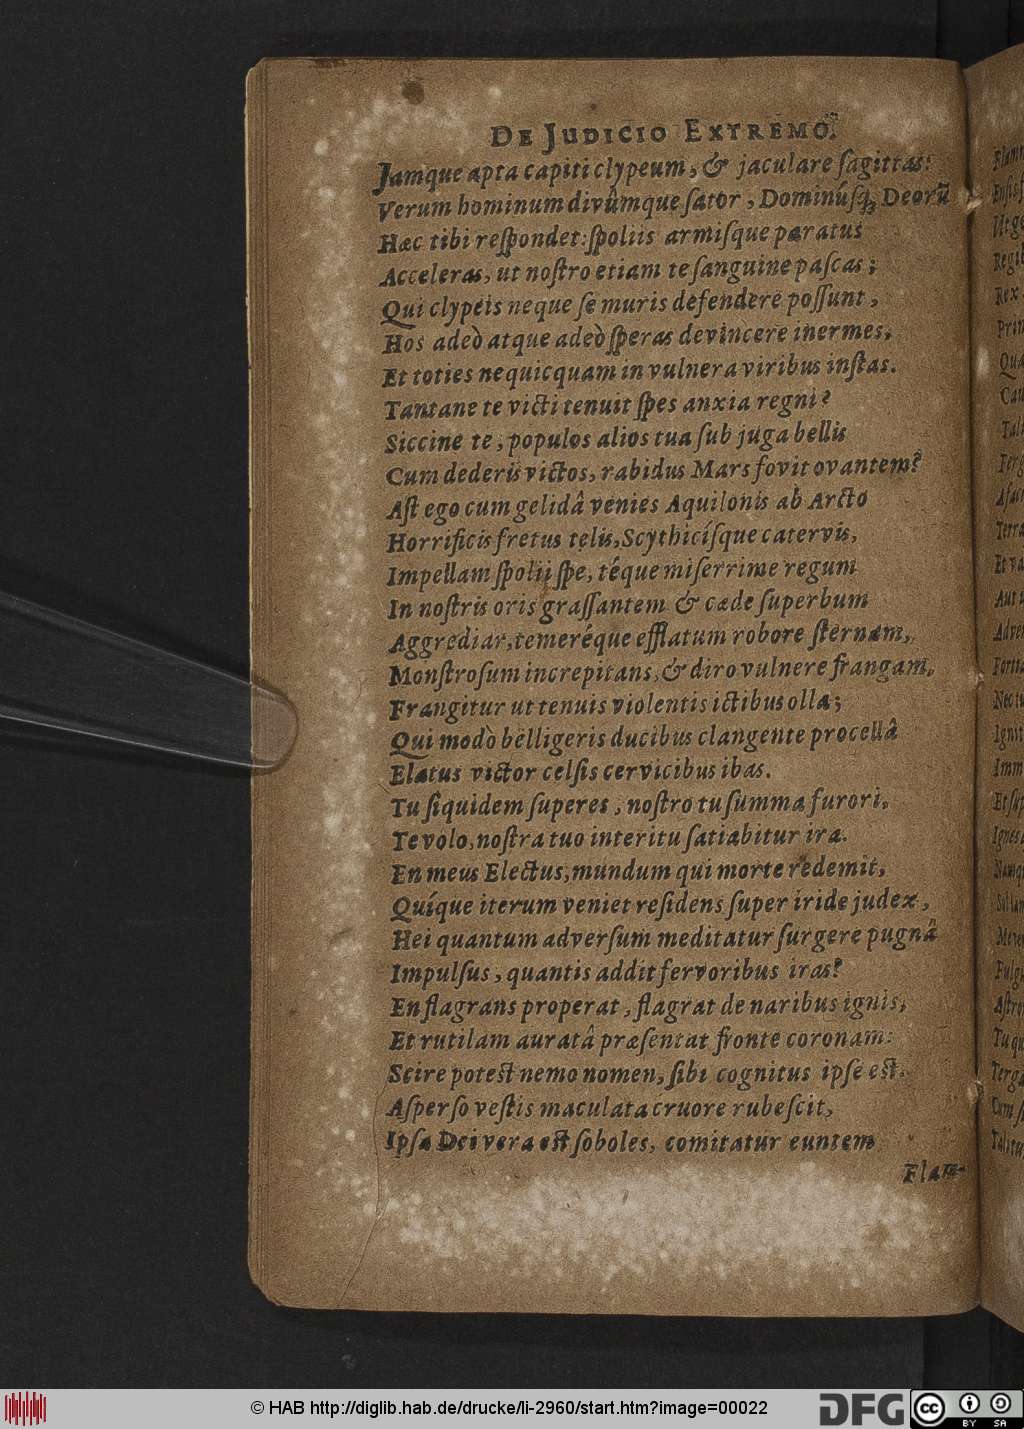 DE JUDICIO EXTREMO.
Jamque apta capiti clypeum, & jaculare ſagittas:
Verum hominum divûmque ſator, Dominúſq; Deorũ
Hæc tibi reſpondet: ſpoliis armiſque paratus
Acceleras, ut noſtro etiam te ſanguine paſcas;
Qui clypeis neque ſe muris defendere poſſunt,
Hos adeò atque adeò ſperas devincere inermes,
Et toties nequicquam in vulnera viribus inſtas.
Tantane te victi tenuit ſpes anxia regni?
Siccine te, populos alios tua ſub juga bellis
Cum dederis victos, rabidus Mars fovit ovantem?
Aſt ego cum gelidâ venies Aquilonis ab Arcto
Horrificis fretus telis, Scythicíſque catervis,
Impellam ſpolii ſpe, téque miſerrime regum
In noſtris oris graſſantem & cæde ſuperbum
Aggrediar, temeréque efflatum robore ſternam,
Monſtroſum increpitans, & diro vulnere frangam,
Frangitur ut tenuis violentis ictibus olla;
Qui modò belligeris ducibus clangente procellâ
Elatus victor celſis cervicibus ibas.
Tu ſiquidem ſuperes, noſtro tu ſumma furori,
Te volo, noſtra tuo interitu ſatiabitur ira.
En meus Electus, mundum qui morte redemit,
Quíque iterum veniet reſidens ſuper iride judex,
Hei quantum adverſum meditatur ſurgere pugnâ
Impulſus, quantis addit fervoribus iras?
En flagrans properat, flagrat de naribus ignis,
Et rutilam auratâ præſentat fronte coronam:
Scire poteſt nemo nomen, ſibi cognitus ipſe eſt.
Aſperſo veſtis maculata cruore rubeſcit,
Ipſa Dei vera eſt ſoboles, comitatur euntem
Flam-
© HAB http://diglib.hab.de/drucke/li-2960/start.htm?image=00022
DFG
cc BY SA